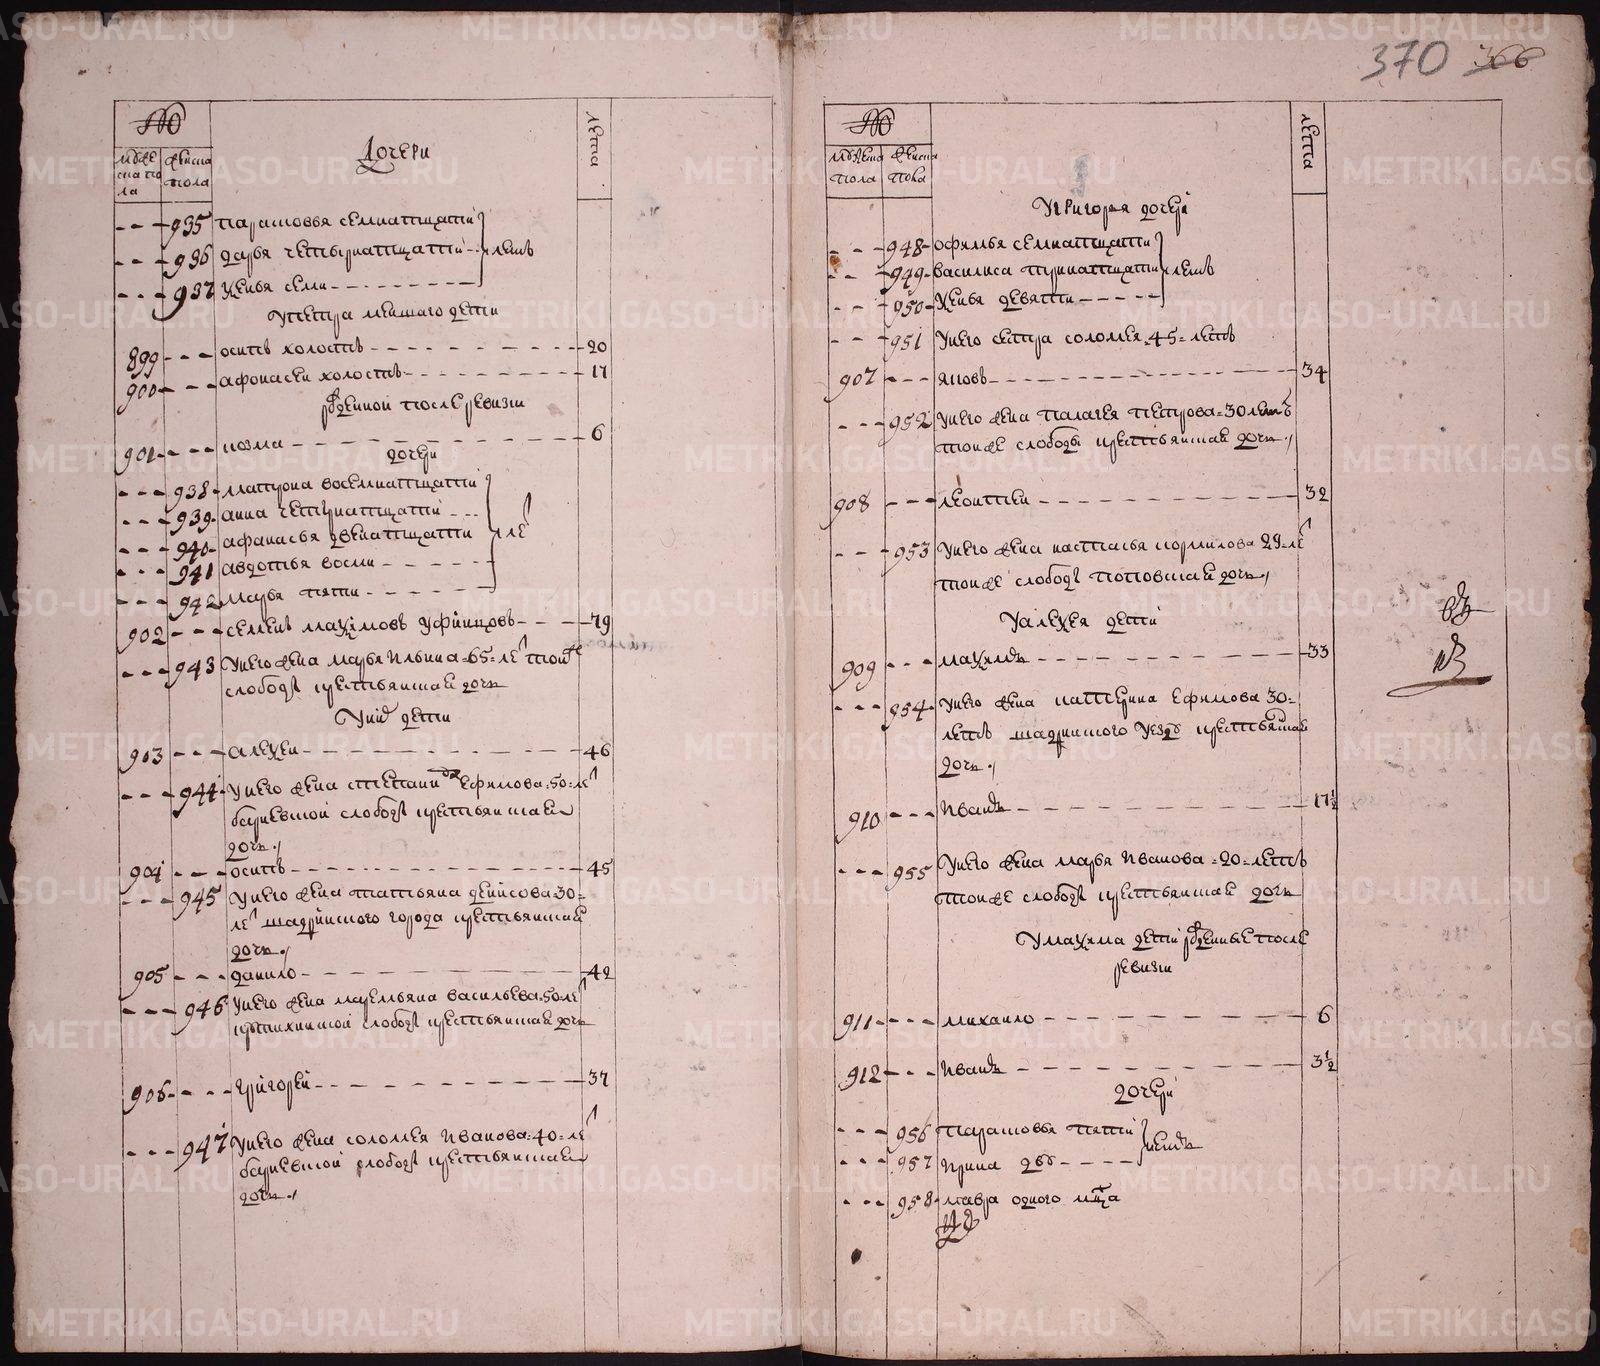 370 366
№
мужеска пола
женска пола
Дочери
лета
935 парасковья семнатцати
936 дарья четырнатцати летъ
937 ксенья семи
У петра меншаго дети
899 осипъ холостъ 20
900 афонасеи холостъ 17
рожденной после ревизи
901 козма 6
дочери
938 матрона восемнатцати
939 анна четырнатцати
940 афанасья двенатцати ле
941 авдотья восми
942 марья пяти
902 семенъ максимовъ уфинцовъ 79
943 У него жена марья ильина 65 ле тои же
слободы крестьянская дочь
У них дети
903 алексеи 46
944 У него жена степанида ефимова 50 ле
барневской слободы крестьянская
дочь
904 осипъ 45
945 У него жена татьяна денисова 30
ле шадринского города крестьянская
дочь
905 данило 42
946 У него жена маремьяна васильева 50 ле
крутихинской слободы крестьянская дочь
906 григореи 37
947 У него жена соломея иванова 40 ле
барневской слободы крестьянская
дочь
№
мужеска пола
женска пола
лета
У григорья дочери
948 офимья семнатцати
949 василиса тринатцати летъ
950 ксенья девяти
951 У него сестра соломея 45 летъ
907 яковъ 34
952 У него жена палагея петрова 30 летъ
той же слободы крестьянская дочь
908 леонтеи 32
953 У него жена настасья корнилова 29 ле
той же слободы поповская дочь
У алексея дети
909 максимъ 33
954 У него жена катерина ефимова 30
летъ шадринского уезду крестьянская
дочь
910 иванъ 17½
955 У него жена марья иванова 20 летъ
той же слободы крестьянская дочь
У максима дети рожденные после
ревизи
911 михаило 6
912 иванъ 3½
дочери
956 парасковья пяти
957 ирина дву летъ
958 мавра одного мца